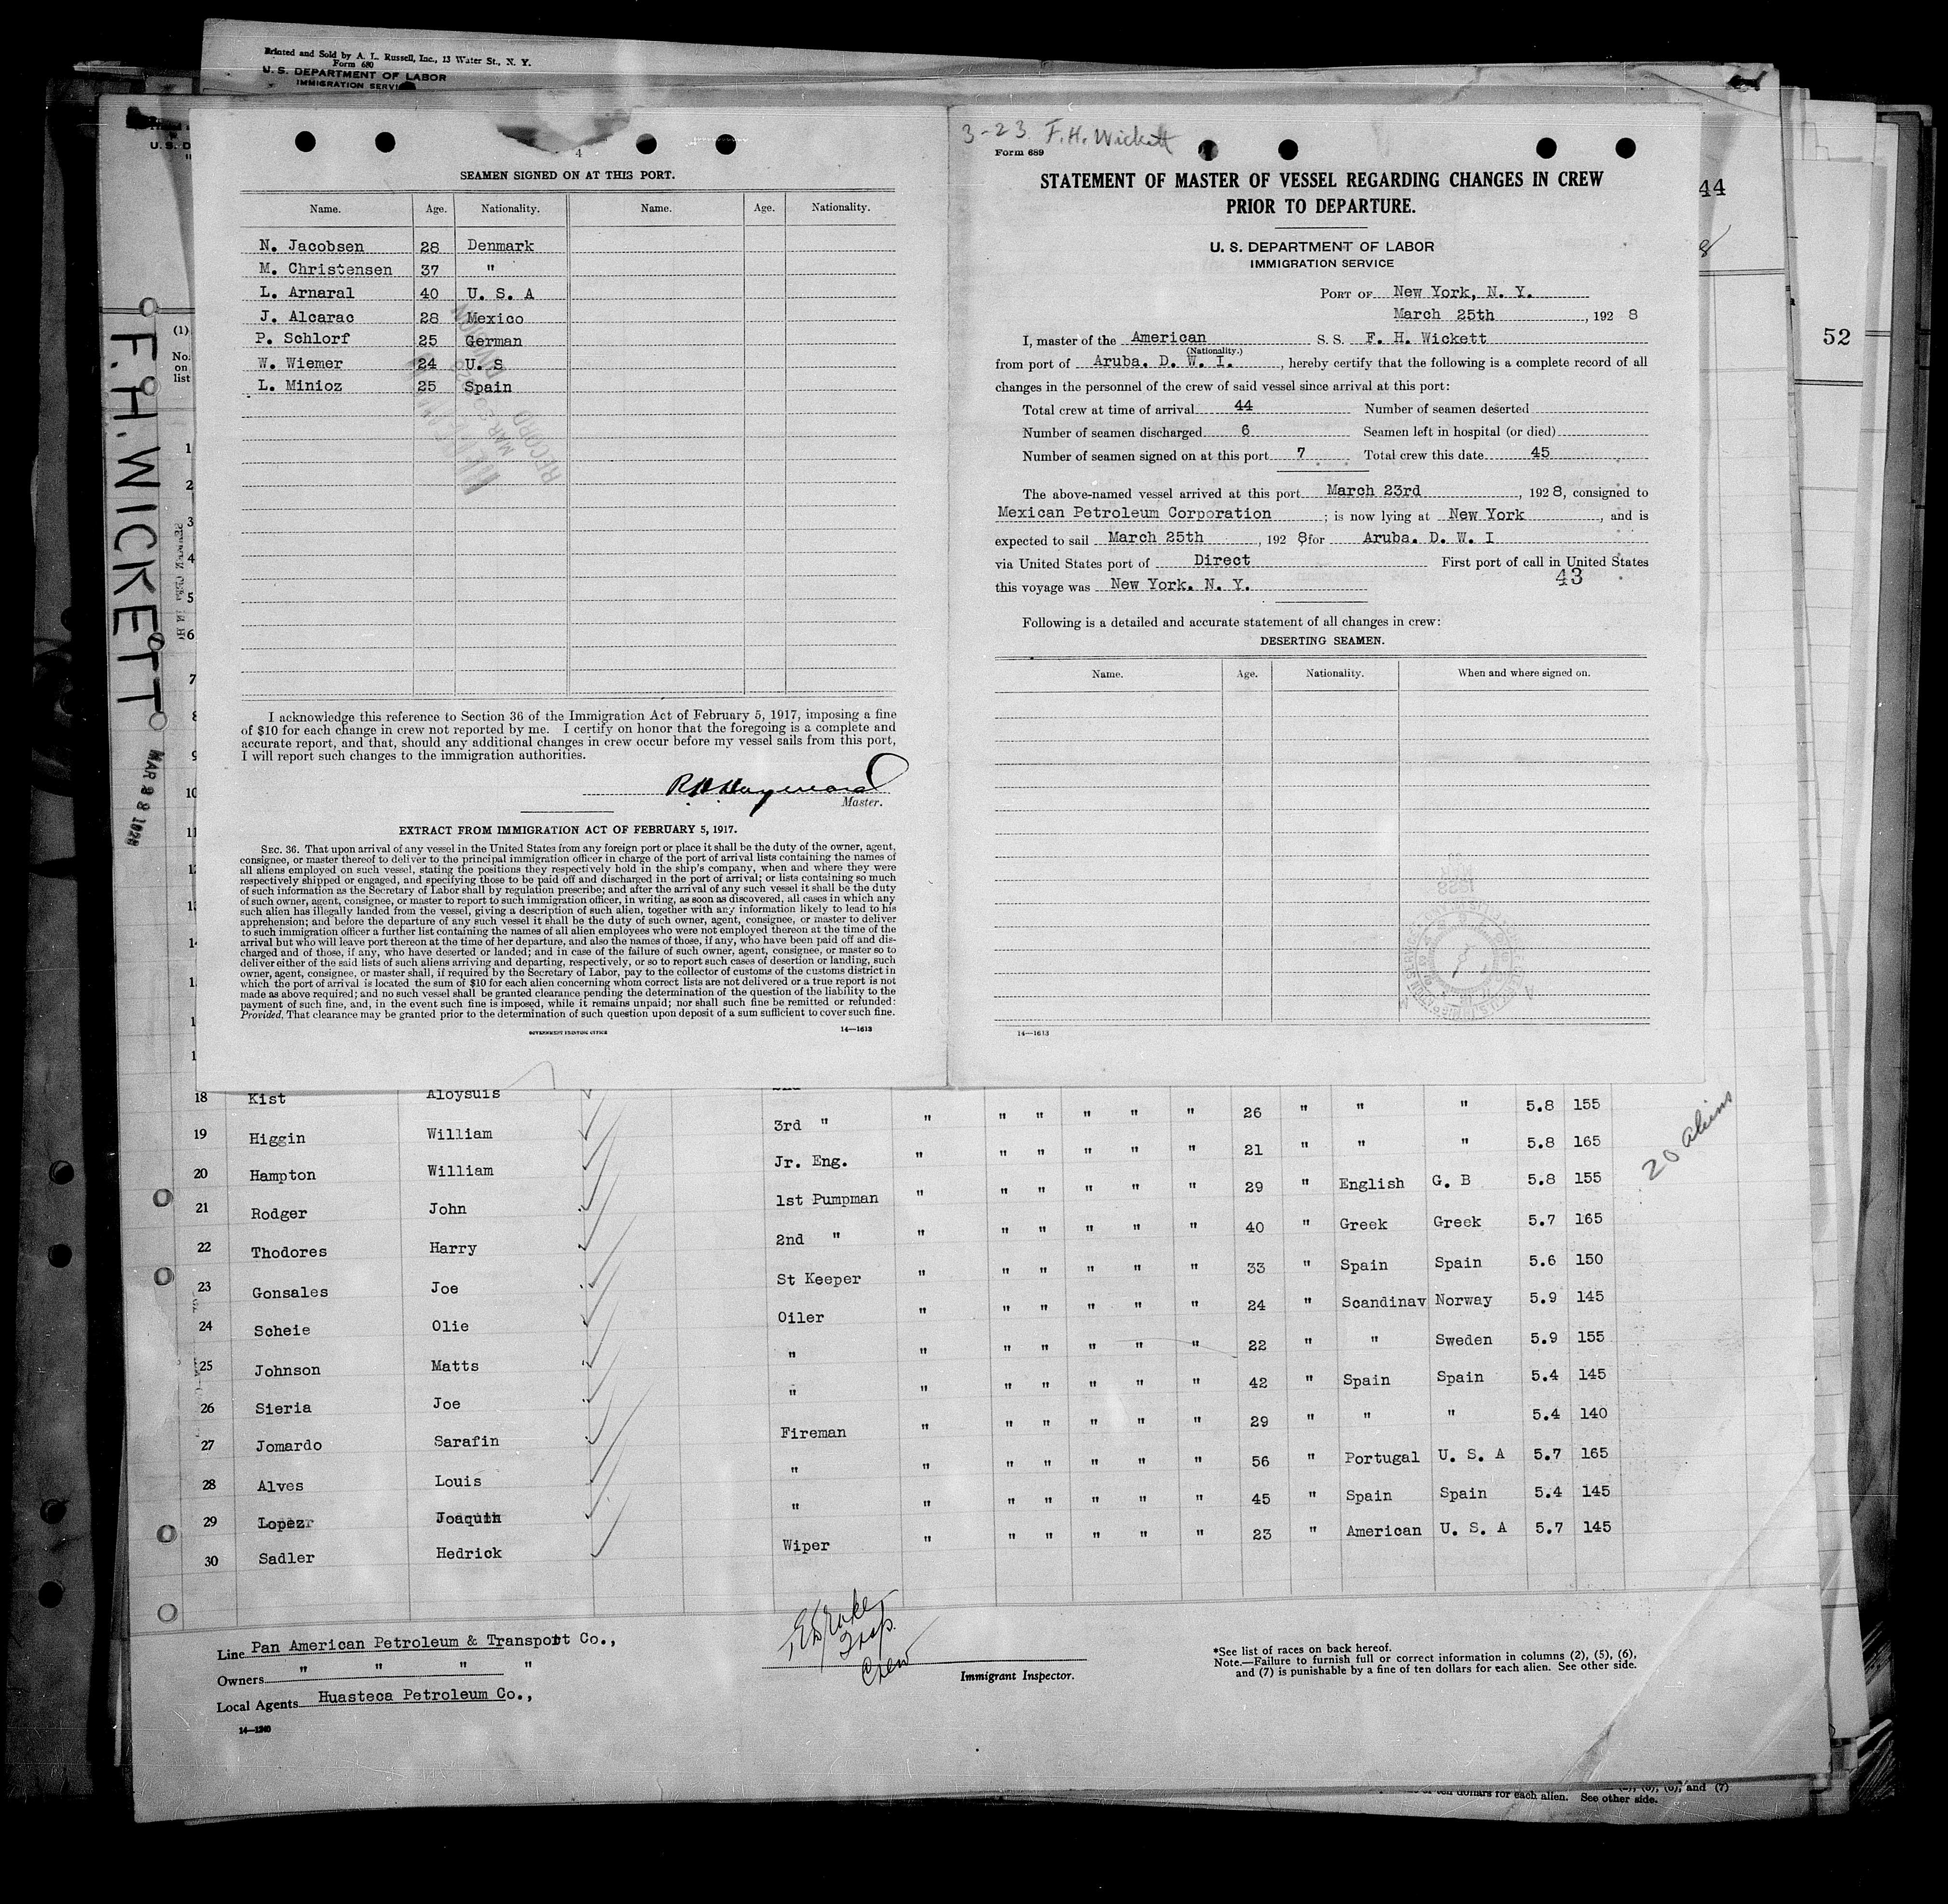 Printed and Sold by A. L. Russell, Inc., 13 Water St., N. Y.
Form 680
U. S. DEPARTMENT OF LABOR
IMMIGRATION SERVICE
U. S. D
44
52
(1)
No. on list
F. H. WICKETT
MAR 28 1928
4
SEAMEN SIGNED ON AT THIS PORT.
Name. Age. Nationality. Name. Age. Nationality.
N. Jacobsen 28 Denmark
M. Christensen 37 "
L. Arnaral 40 U. S. A
J. Alcarac 28 Mexico
P. Schlorf 25 German
W. Wiemer 24 U. S
L. Minioz 25 Spain
RECORD DIVISION
I acknowledge this reference to Section 36 of the Immigration Act of February 5, 1917, imposing a fine
of $10 for each change in crew not reported by me. I certify on honor that the foregoing is a complete and
accurate report, and that, should any additional changes in crew occur before my vessel sails from this port,
I will report such changes to the immigration authorities.
R H Hayward
Master.
EXTRACT FROM IMMIGRATION ACT OF FEBRUARY 5, 1917.
SEC. 36. That upon arrival of any vessel in the United States from any foreign port or place it shall be the duty of the owner, agent,
consignee, or master thereof to deliver to the principal immigration officer in charge of the port of arrival lists containing the names of
all aliens employed on such vessel, stating the positions they respectively hold in the ship's company, when and where they were
respectively shipped or engaged, and specifying those to be paid off and discharged in the port of arrival; or lists containing so much
of such information as the Secretary of Labor shall by regulation prescribe; and after the arrival of any such vessel it shall be the duty
of such owner, agent, consignee, or master to report to such immigration officer, in writing, as soon as discovered, all cases in which any
such alien has illegally landed from the vessel, giving a description of such alien, together with any information likely to lead to his
apprehension; and before the departure of any such vessel it shall be the duty of such owner, agent, consignee, or master to deliver
to such immigration officer a further list containing the names of all alien employees who were not employed thereon at the time of the
arrival but who will leave port thereon at the time of her departure, and also the names of those, if any, who have been paid off and dis-
charged and of those, if any, who have deserted or landed; and in case of the failure of such owner, agent, consignee, or master so to
deliver either of the said lists of such aliens arriving and departing, respectively, or so to report such cases of desertion or landing, such
owner, agent, consignee, or master shall, if required by the Secretary of Labor, pay to the collector of customs of the customs district in
which the port of arrival is located the sum of $10 for each alien concerning whom correct lists are not delivered or a true report is not
made as above required; and no such vessel shall be granted clearance pending the determination of the question of the liability to the
payment of such fine, and, in the event such fine is imposed, while it remains unpaid; nor shall such fine be remitted or refunded:
Provided, That clearance may be granted prior to the determination of such question upon deposit of a sum sufficient to cover such fine.
GOVERNMENT PRINTING OFFICE 14—1613
3-23 F.H. Wickett
Form 689
STATEMENT OF MASTER OF VESSEL REGARDING CHANGES IN CREW
PRIOR TO DEPARTURE.
U. S. DEPARTMENT OF LABOR
IMMIGRATION SERVICE
PORT OF New York, N. Y.
March 25th, 1928
I, master of the American S. S. F. H. Wickett
(Nationality.)
from port of Aruba. D. W. I., hereby certify that the following is a complete record of all
changes in the personnel of the crew of said vessel since arrival at this port:
Total crew at time of arrival 44 Number of seamen deserted
Number of seamen discharged 6 Seamen left in hospital (or died)
Number of seamen signed on at this port 7 Total crew this date 45
The above-named vessel arrived at this port March 23rd, 1928, consigned to
Mexican Petroleum Corporation; is now lying at New York, and is
expected to sail March 25th, 1928 for Aruba. D. W. I
via United States port of Direct First port of call in United States
this voyage was New York. N. Y. 43
Following is a detailed and accurate statement of all changes in crew:
DESERTING SEAMEN.
Name. Age. Nationality. When and where signed on.
14—1613
18 Kist Aloysuis 2nd
3rd " " " " " " " 26 " " " 5.8 155
19 Higgin William
Jr. Eng. " " " " " " 21 " " " 5.8 165
20 Hampton William
1st Pumpman " " " " " " 29 " English G. B 5.8 155
21 Rodger John
2nd " " " " " " " 40 " Greek Greek 5.7 165
22 Thodores Harry
St Keeper " " " " " " 33 " Spain Spain 5.6 150
23 Gonsales Joe
Oiler " " " " " " 24 " Scandinav Norway 5.9 145
24 Scheie Olie
" " " " " " " 22 " " Sweden 5.9 155
25 Johnson Matts
" " " " " " " 42 " Spain Spain 5.4 145
26 Sieria Joe
Fireman " " " " " " 29 " " " 5.4 140
27 Jomardo Sarafin
" " " " " " " 56 " Portugal U. S. A 5.7 165
28 Alves Louis
" " " " " " " 45 " Spain Spain 5.4 145
29 Lopez Joaquin
Wiper " " " " " " 23 " American U. S. A 5.7 145
30 Sadler Hedrick
20 aliens
Line Pan American Petroleum & Transport Co.,
Owners " " " "
Local Agents Huasteca Petroleum Co.,
14—1240
Insp.
Crew
Immigrant Inspector.
*See list of races on back hereof.
Note.—Failure to furnish full or correct information in columns (2), (5), (6),
and (7) is punishable by a fine of ten dollars for each alien. See other side.
and (7)
dollars for each alien. See other side.